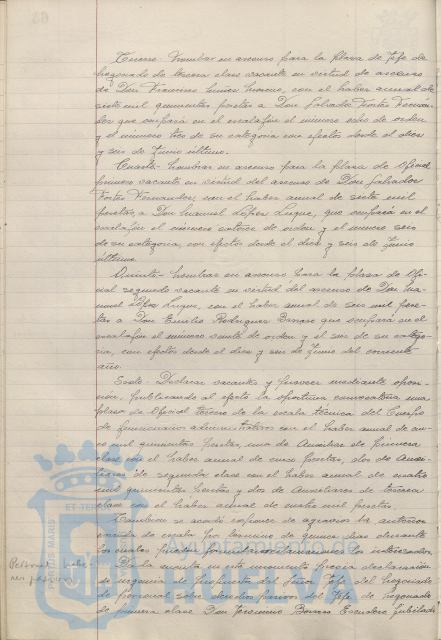 Tercero.- Nombrar en ascenso para la plaza de Jefe de
Negociado de tercera clase vacante en virtud de ascenso
de Don Francisco Moreno, con el haber anual de
siete mil quinientas pesetas a Don Salvador Fortes Fernan-
dez que ocupará en el escalafón el número de orden
y el número tres de su categoría con efectos desde el diez
y seis de Junio último.
Cuarto.- Nombrar en ascenso para la plaza de Oficial
primero vacante en virtud del ascenso de Don Salvador
Fortes Fernandez, con el haber anual de siete mil
pesetas, a Don Manuel López Luque, que ocupará en el
escalafón el número catorce de orden y el número seis
de su categoría, con efectos desde el diez y seis de Junio
último.
Quinto.- Nombrar en ascenso para la plaza de Ofi-
cial segundo vacante en virtud del ascenso de Don Ma-
nuel López Luque, con el haber anual de seis mil pese-
tas a Don Emilio Rodriguez que ocupará en el
escalafón el número veinte de orden y el seis de su catego-
ría, con efectos desde el diez y seis de Junio del corriente
año.
Sexto.- Declarar vacantes y proveer mediante oposi-
ción, publicando al efecto la oportuna convocatoria una
plaza de Oficial tercero de la escala técnica del Cuerpo
de funcionarios administrativos con el haber anual de cin-
co mil quinientas pesetas, una de Auxiliar de primera
clase con el haber anual de cinco mil pesetas, dos de Auxi-
liares de segunda clase con el haber anual de cuatro
mil quinientas pesetas y dos de Auxiliares de tercera
clase con el haber anual de cuatro mil pesetas.
Tambien se acordó de agravios la anterior
de escala por término de quince dias durante
los cuales pueden formular reclamaciones los interesados.
Dada cuenta en este momento previa declaración
de urgencia de propuesta del Señor Jefe del Negociado
de Personal sobre derechos pasivos del Jefe de Negociado
de primera clase Don Jubilado